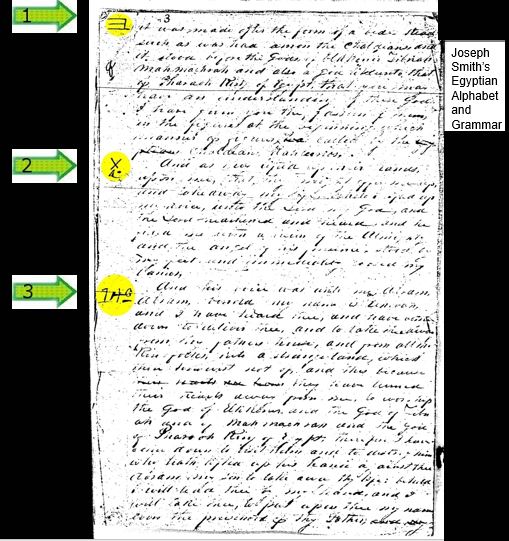 1
2
3
Joseph
Smith's
Egyptian
Alphabet
and
Grammar
3
it was made after the form of a bed stead
such as was had among the Chaldeans and
it stood before the Gods of
and also a God like unto that
of Pharaoh King of Egypt that you may
have an understanding of these Gods
I have given you the fashion of them
in the figures at the beginning which
manner of figures is called by the
And as they lifted up their hands
upon me, that they might offer me up
and take away my life, behold I lifted up
my voice, unto the Lord my God, and
the Lord hearkened and heard, and he
filled me with a vision of the Almighty
and the angel of his presence stood by
my feet and immediately loosed my
bands.
And his voice was unto me Abram,
Abram, behold my name is
and I have heard thee, and have come
down to deliver thee, and to take thee away
from thy fathers house, and from all thy
kin folks, into a strange land, which
thou knowest not of, and this because
they have turned
their hearts away from me, to worship
the God of and the God of
and of and the God
of Pharaoh King of Egypt therefore I have
come down to visit them and to destroy him
who hath lifted up his hand against thee
Abram my son to take away thy life: behold
I will lead thee by my hand, and I
will take thee, to put upon thee my name
even the priesthood of thy father,